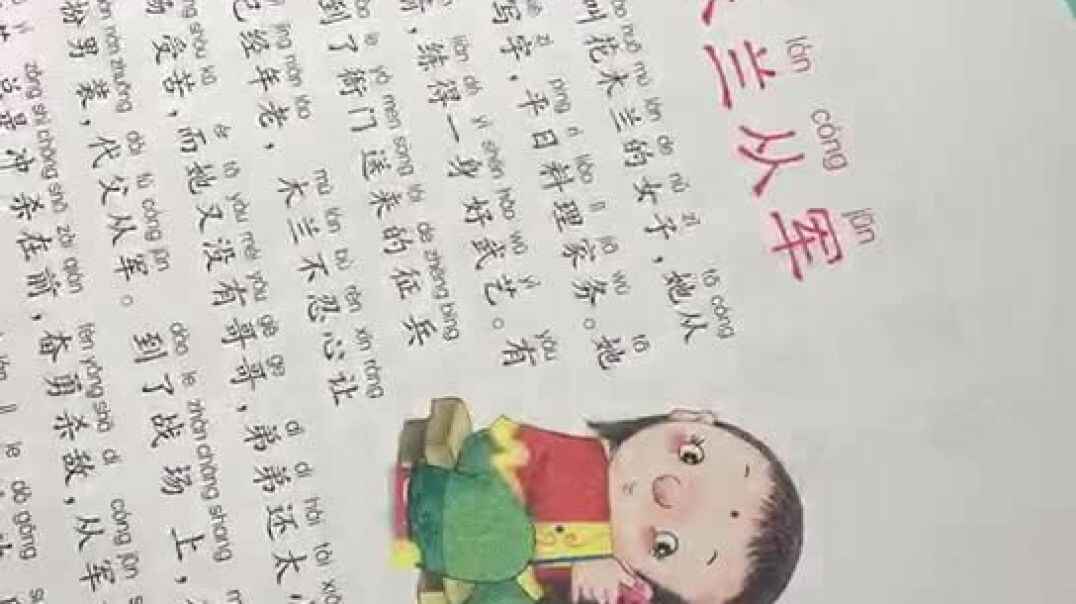 lán cóng jūn
兰从军
huā mù lán de nǚ zǐ tā cóng
叫花木兰的女子，她从
zì píng rì liào lǐ jiā wù tā
写字，平日料理家务。她
liàn dé yì shēn hǎo wǔ yì yǒu
，练得一身好武艺。有
le yá men sòng lái de zhēng bīng
到了衙门送来的征兵
jīng nián lǎo mù lán bù rěn xīn ràng
已经年老，木兰不忍心让
shòu kǔ ér tā yòu méi yǒu gē ge dì di hái tài
受苦，而她又没有哥哥，弟弟还太
nán zhuāng dài fù cóng jūn dào le zhàn chǎng shang
扮男装，代父从军。到了战场上，
zǒng shì chōng shā zài qián fèn yǒng shā dí cóng jūn
总是冲杀在前，奋勇杀敌，从军
le dà gōng